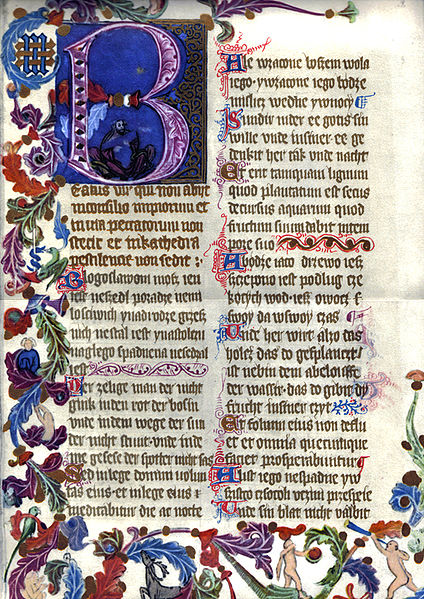 Beatus vir qui non abyt
in consilio impiorum et
in via peccatorum non
stetit et in kathedra
pestilencie non sedit :
Bogoslawoni mosz ien
ien ne szedl po radze nemi
losciwich y na drodze grzesz
nich ne stal iest y na stolcu
naglego spadnena ne sedzal
iest
Der zelige man der nicht
gink in den rot der bosin
unde in dem wege der sun
der nicht stunt · unde in de
me gesese der spotter nicht sas
Sed in lege domini volun
tas eius · et in lege eius
meditabitur die ac nocte
Ale w zacone bozem wola
iego · y w zacone iego bodze
mislicz we dne y w nocy
Sundir in der ee gotis sin
wille unde in siner · ee ge
denkit her tak unde nacht
Et erit tamquam lignum
quod plantatum est secus
decursus aquarum quod
fructum suum dabit in tem
pore suo
A bodze iaco drzewo iesz
szczepono iest podlug cze
kocych wod · iesz owocz s
swoy da w swoy czas
Unde her wirt alzo das
holcz das do gesplanczit
ist nebin dem abelousse
der wassir · das do gibit di
frucht in siner czyt
Et folium eius non deflu
et et omnia quecunque
faciet prosperabuntur
A list iego ne spadne y w
szistko czsokoli uczini przespeie
Unde sin blat nicht valbit